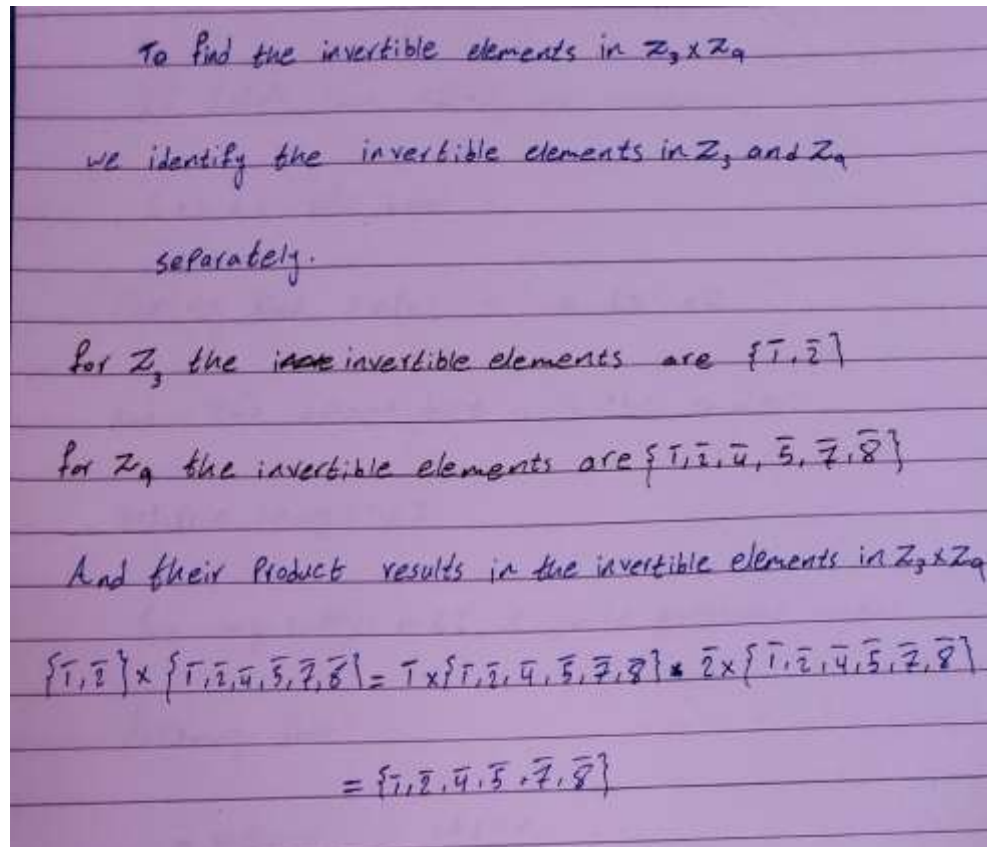 To find the invertible elements in Z₃ x Z₉
we identify the invertible elements in Z₃ and Z₉
separately.
for Z₃ the invertible elements are {1̄, 2̄}
for Z₉ the invertible elements are {1̄, 2̄, 4̄, 5̄, 7̄, 8̄}
And their Product results in the invertible elements in Z₃ x Z₉
{1̄, 2̄} x {1̄, 2̄, 4̄, 5̄, 7̄, 8̄} = 1̄ x {1̄, 2̄, 4̄, 5̄, 7̄, 8̄} 2̄ x {1̄, 2̄, 4̄, 5̄, 7̄, 8̄}
= {1̄, 2̄, 4̄, 5̄, 7̄, 8̄}